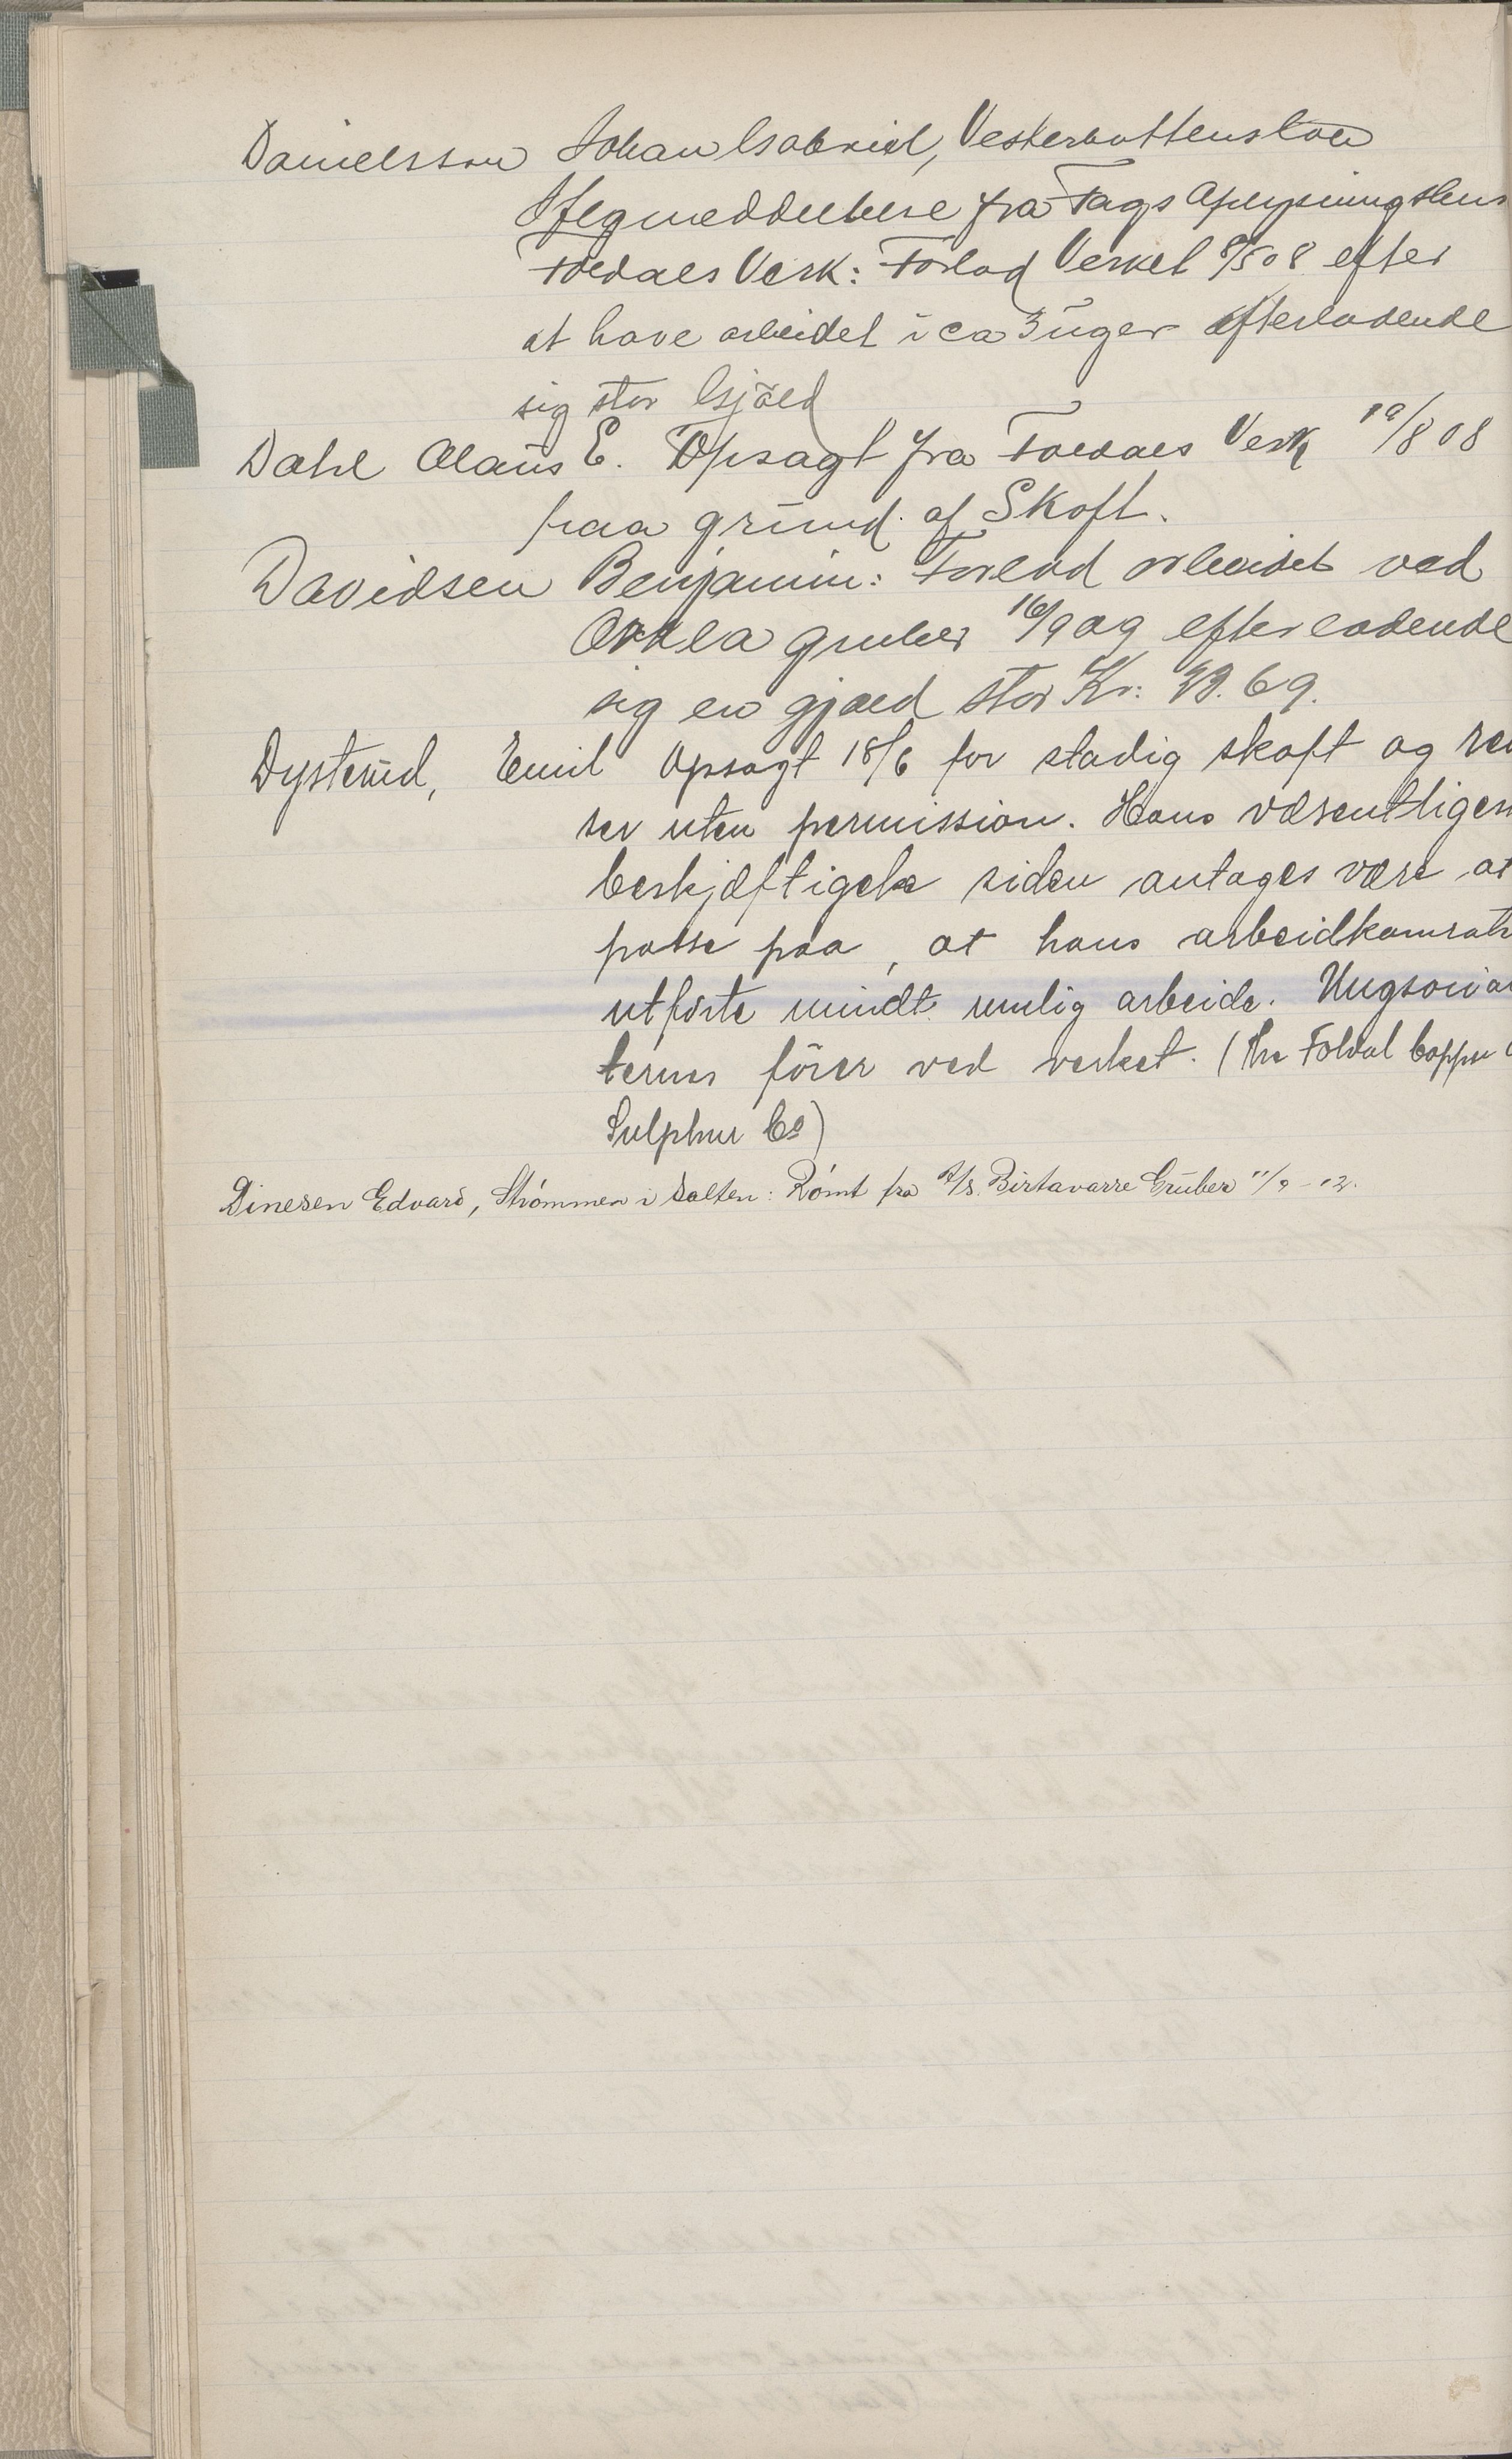 Danielsson Johan Gabriel, Vesterbottenslän
Iflg meddelelse fra Fags Oplysningskon
Foldals Verk: Forlod Verket 8/5 08 efter
at have arbeidet i ca 3 uger efterladende
sig stor Gjæld
Dahl Olaus E. Opsagt fra Foldals Verk 19/8 08
paa grund af Skoft.
Davidsen Benjamin: Forlod arbeidet ved
Orkla gruber 16/9 09 efterladende
sig en gjæld stor Kr: 69.
Dysterud, Emil Opsagt 18/6 for stadig skoft og rei
ser uten permission. Hans væsentligen
beskjæftigelse siden antages være at
passe paa, at hans arbeidkamrate
utförte mindt mulig arbeide. Ungsocia
ternes förer ved verket. (The Foldal Copper
Sulphur Co)
Dinesen Edvard, Strømmen i Salten: Rømt fra A/S. Birtavarre Gruber 11/9 - 12.